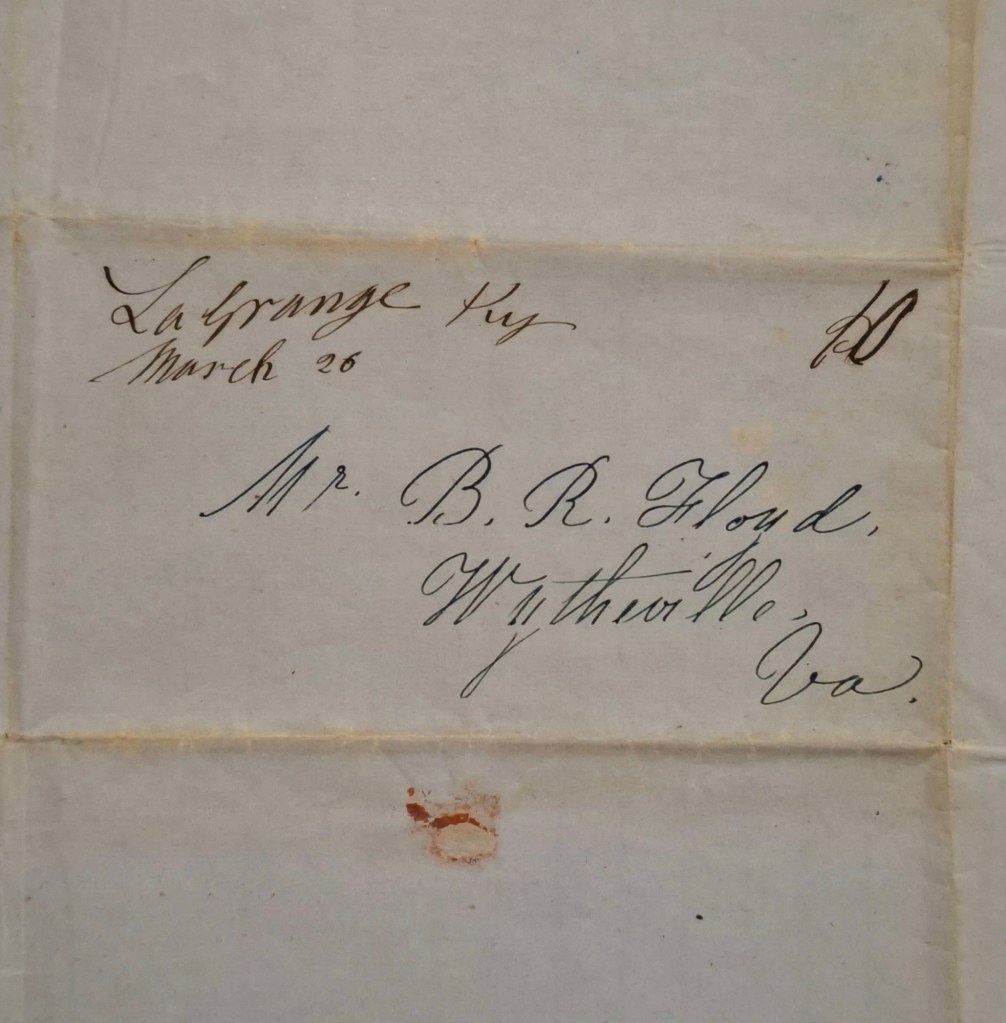 LaGrange Ky
March 26
10
Mr. B. R. Floyd,
Wytheville,
Va.